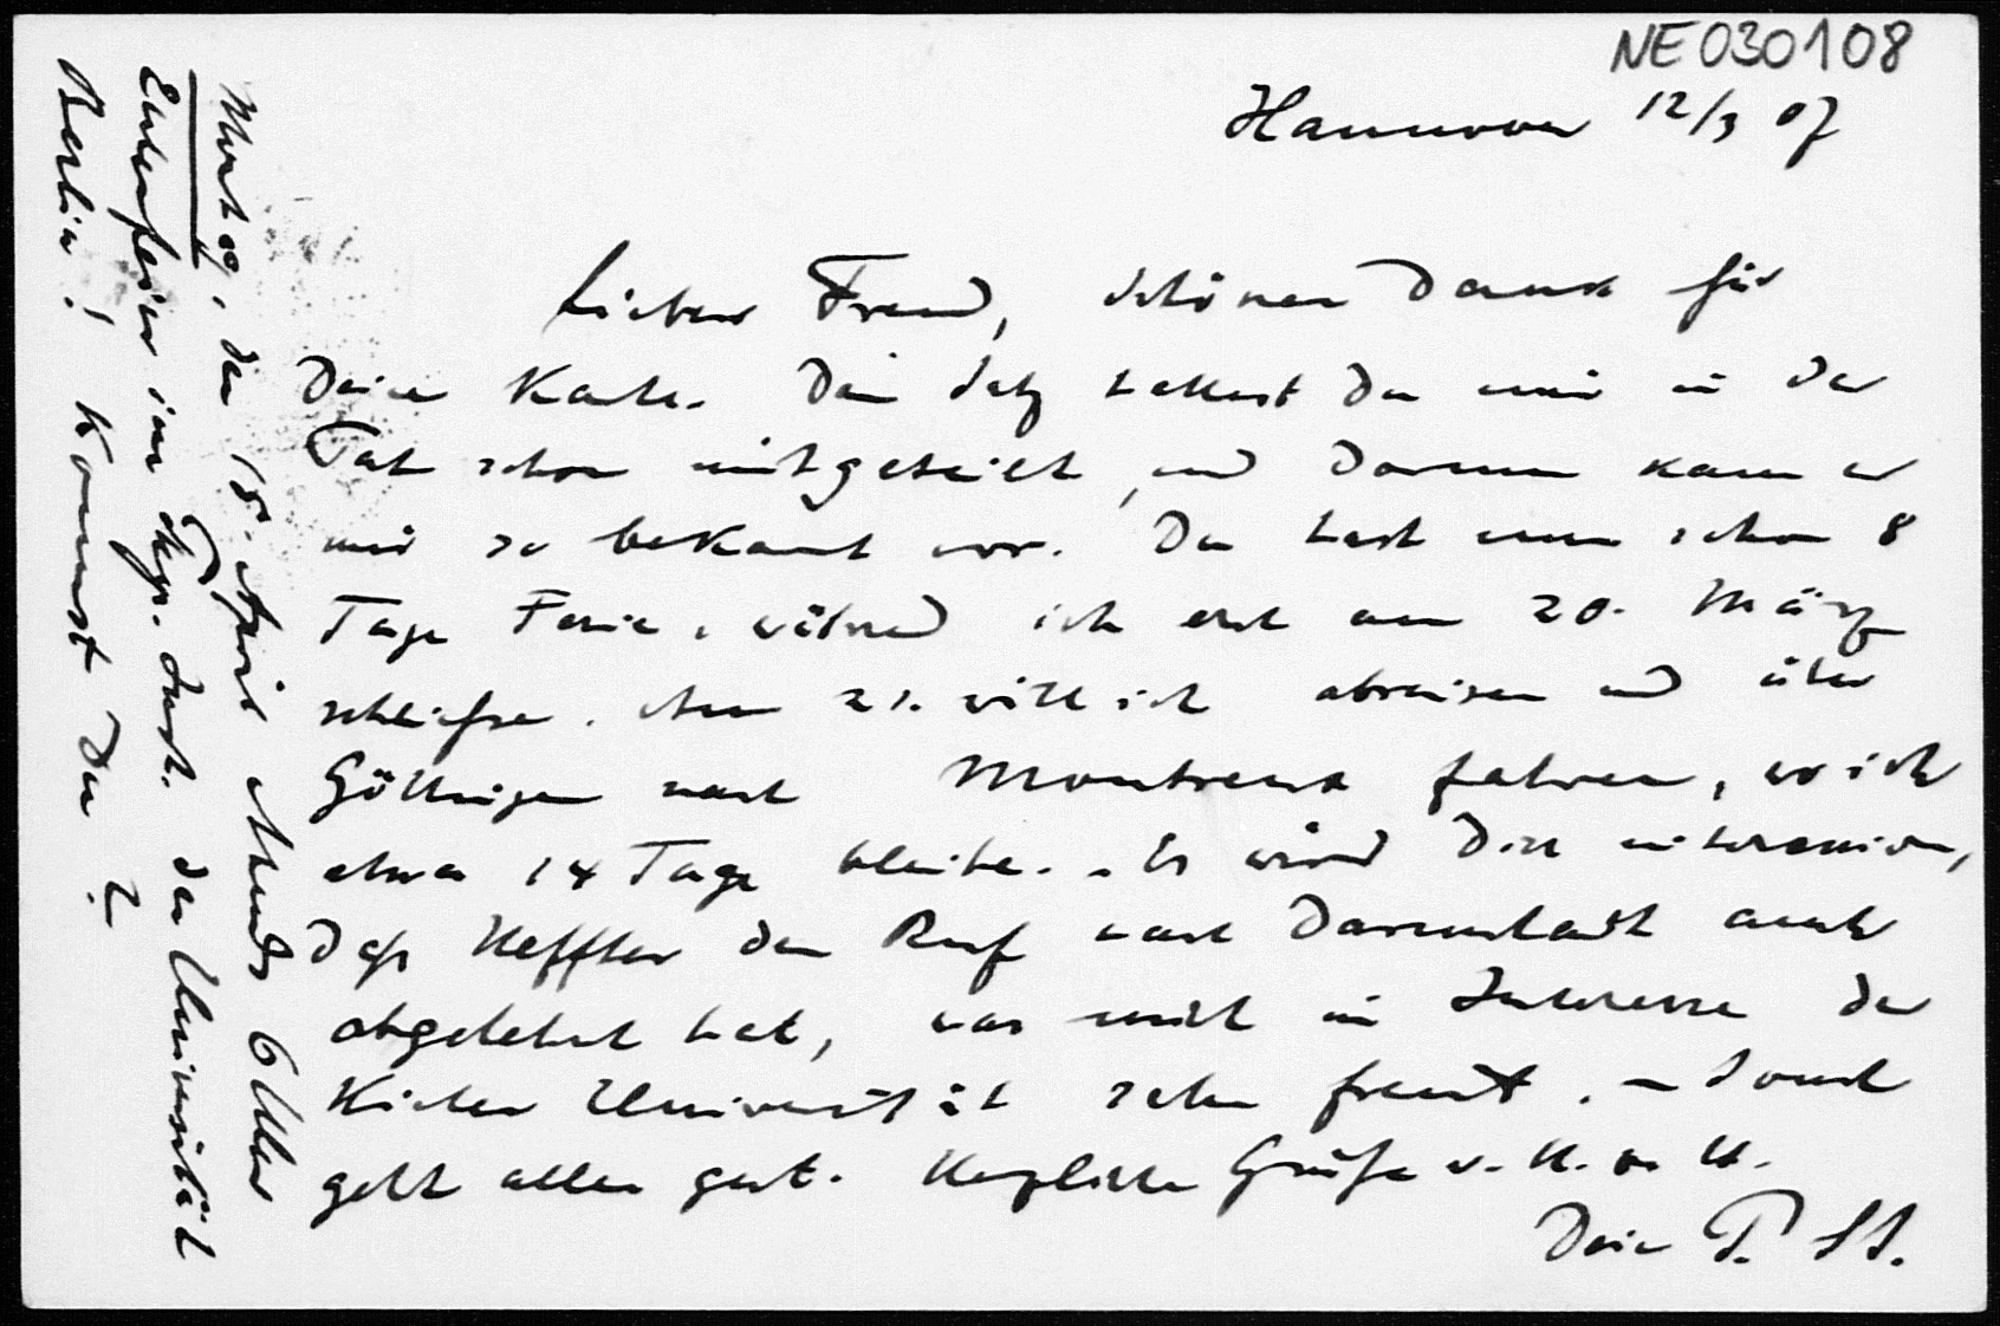 NE030108
Hannover 12/3 07
Lieber Freund, schönen Dank für
Deine Karte. Den Satz hattest Du mir in der
Tat schon mitgeteilt, und darum kam er
mir so bekannt vor. Du hast nun schon 8
Tage Ferien, während ich erst am 20. März
schließe. Am 21. will ich abreisen und über
Göttingen nach Montreux fahren, wo ich
etwa 14 Tage bleibe. – Es wird Dich interessieren,
daß Heffter den Ruf nach Darmstadt auch
abgelehnt hat, was mich im Interesse der
Kieler Universität sehr freut. – Sonst
geht alles gut. Herzliche Grüße v. H. z. H.
Dein P. St.
Montag, den 15. April Abends 6 Uhr
Eulerfeier im Hyg. Inst. der Universität
Berlin! Kommst Du?